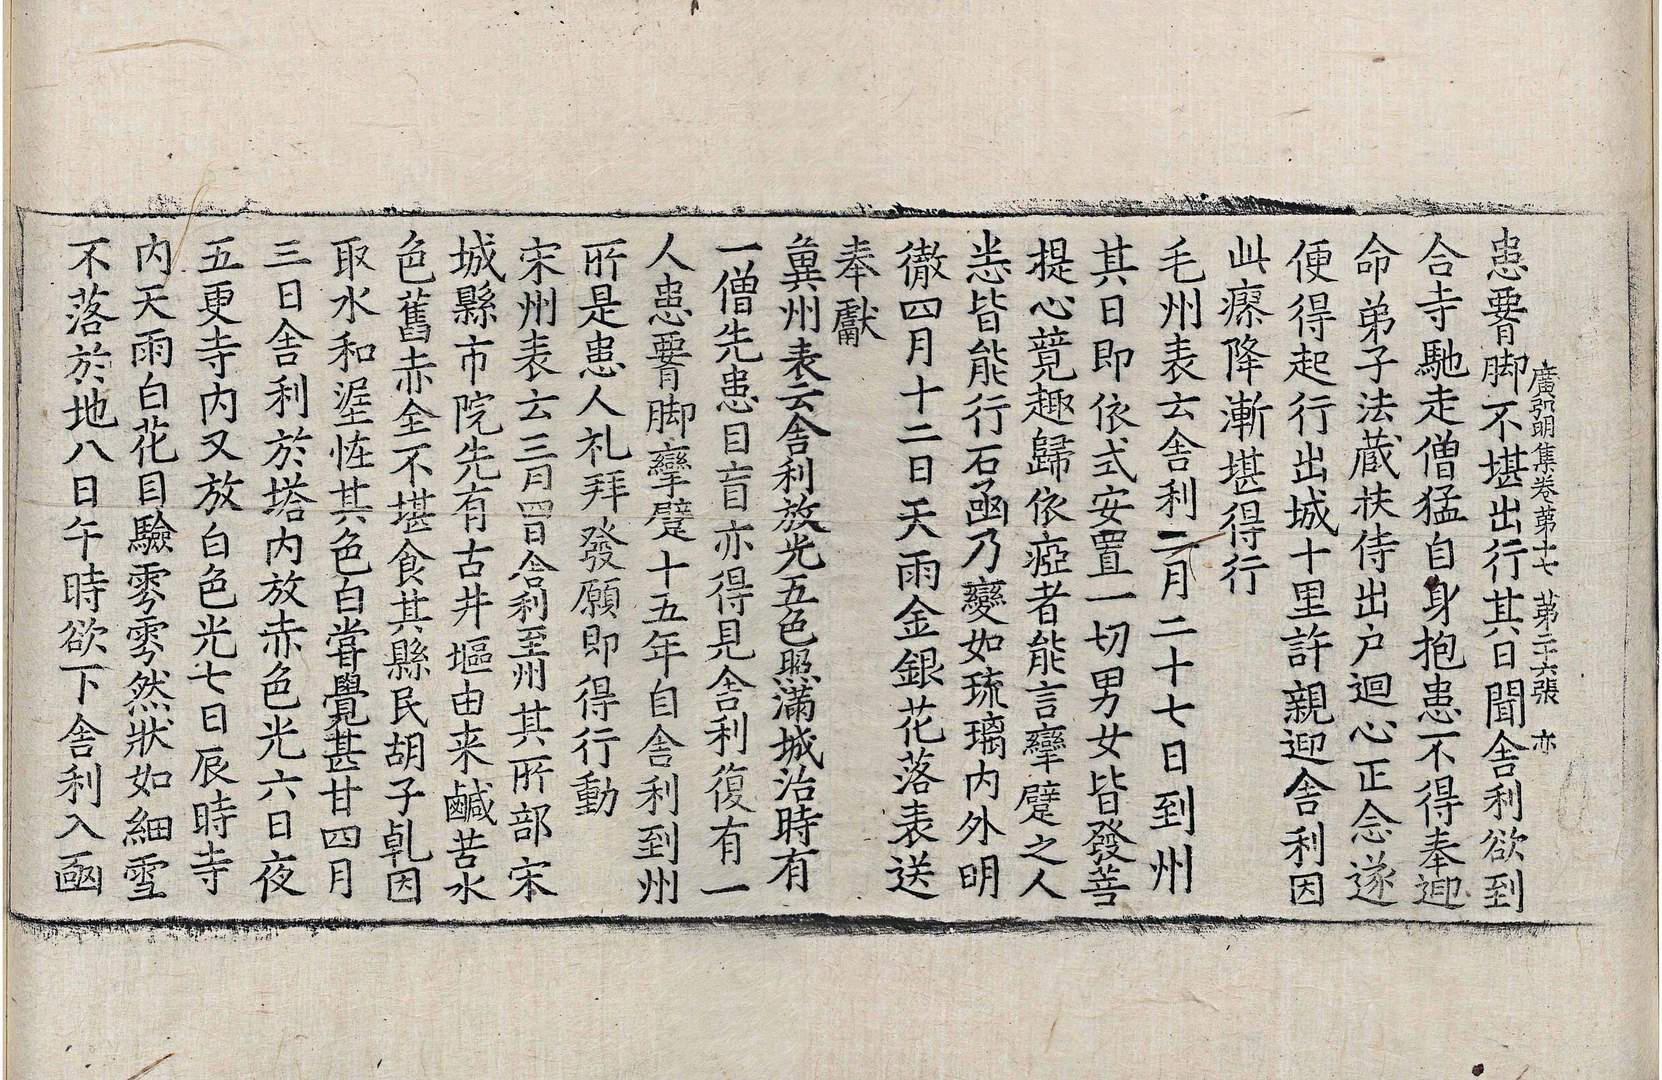 廣弘明集卷第十七　第二十六張　亦
患䯒脚不堪出行其日聞舍利欲到
合寺馳走僧猛自身抱患不得奉迎
命弟子法藏扶侍出户迴心正念遂
便得起行出城十里許親迎舍利因
此瘵降漸堪得行
毛州表云舍利二月二十七日到州
其日即依式安置一切男女皆發菩
提心競趣歸依瘂者能言攣躄之人
悉皆能行石函乃變如琉璃内外明
徹四月十二日天雨金銀花落表送
奉獻
冀州表云舍利放光五色照滿城治時有
一僧先患目盲亦得見舍利復有一
人患䯒脚攣躄十五年自舍利到州
所是患人礼拜發願即得行動
宋州表云三月四日舍利至州其所部宋
城縣市院先有古井塸由来鹹苦水
色舊赤全不堪食其縣民胡子乹因
取水和渥恠其色白甞覺甚甘四月
三日舍利於塔内放赤色光六日夜
五更寺内又放白色光七日辰時寺
内天雨白花目驗雰雰然狀如細雪
不落於地八日午時欲下舍利入函